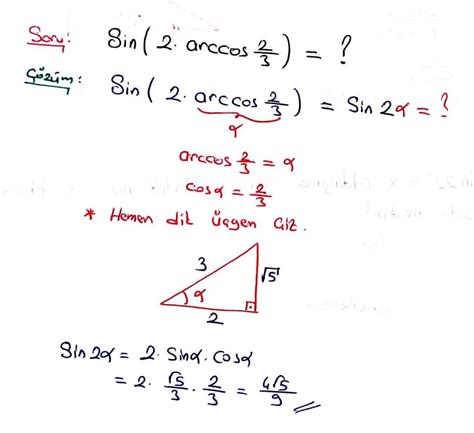 Soru: Sin(2·arccos 2/3) = ?
Çözüm: Sin(2·arccos 2/3) = Sin2α = ?
α
arccos 2/3 = α
cosα = 2/3
* Hemen dik üçgen Çiz.
3
√5
α
2
Sin2α = 2·Sinα·cosα
= 2·√5/3·2/3 = 4√5/9